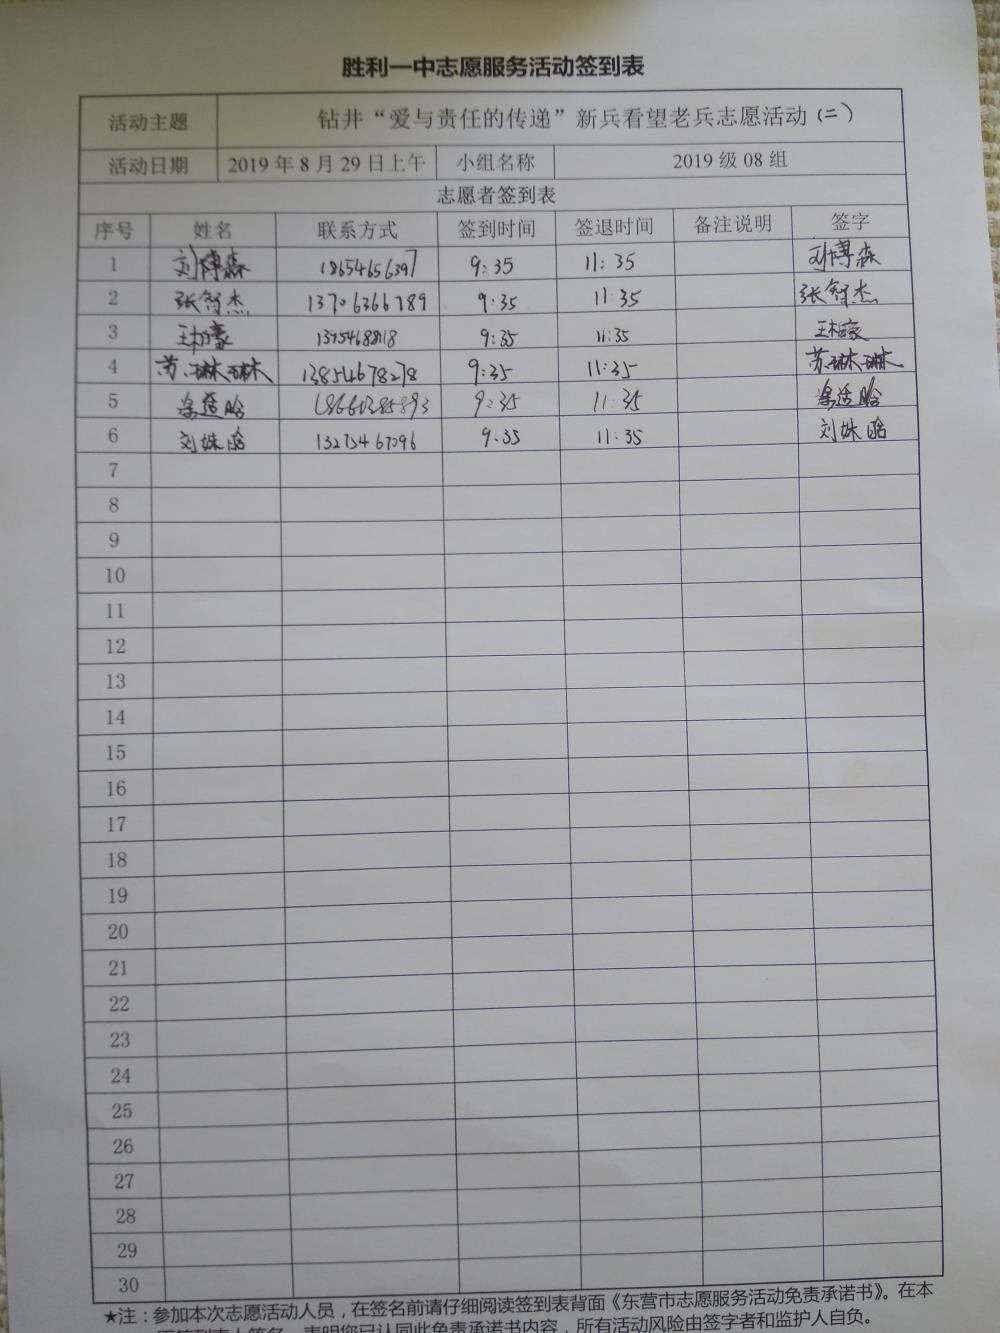 胜利一中志愿服务活动签到表
活动主题 钻井“爱与责任的传递”新兵看望老兵志愿活动(二)
活动日期 2019年8月29日上午 小组名称 2019级08组
志愿者签到表
序号 姓名 联系方式 签到时间 签退时间 备注说明 签字
1 刘博森 18654656397 9:35 11:35 刘博森
2 张智杰 13706366789 9:35 11:35 张智杰
3 王柏豪 9:35 11:35 王柏豪
4 苏琳琳 13854678278 9:35 11:35 苏琳琳
5 18660385893 9:35 11:35
6 刘姝晗 13275467096 9:35 11:35 刘姝晗
7
8
9
10
11
12
13
14
15
16
17
18
19
20
21
22
23
24
25
26
27
28
29
30
★注：参加本次志愿活动人员，在签名前请仔细阅读签到表背面《东营市志愿服务活动免责承诺书》。在本
表明您已认同此免责承诺书内容，所有活动风险由签字者和监护人自负。